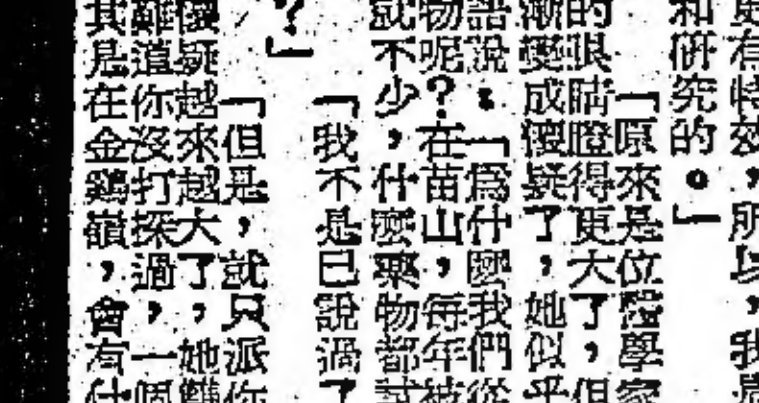 更有特效，所以，我是
和研究的。」
「原來是位醫學家
的眼睛瞪得更大了，但
漸變成懷疑了，她似乎
語說：「爲什麼我們從
物呢？在苗山，每年被
就不少，什麼藥物都試
「我不是已說過了
？」
「但是，就只派你
懷疑越來越大了，她
難道你沒打探過，一個
其是在金鷄嶺，會有什